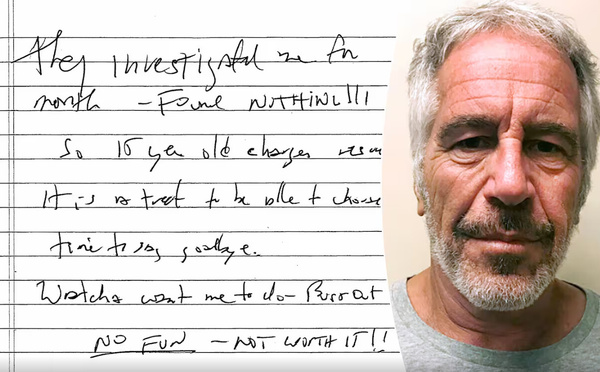 they investigated me for
month - Found NOTHING!!!
So 15 year old charges
It is a treat to be able to choose
time to say goodbye.
Watcha want me to do - Burst out
NO FUN - NOT WORTH IT!!